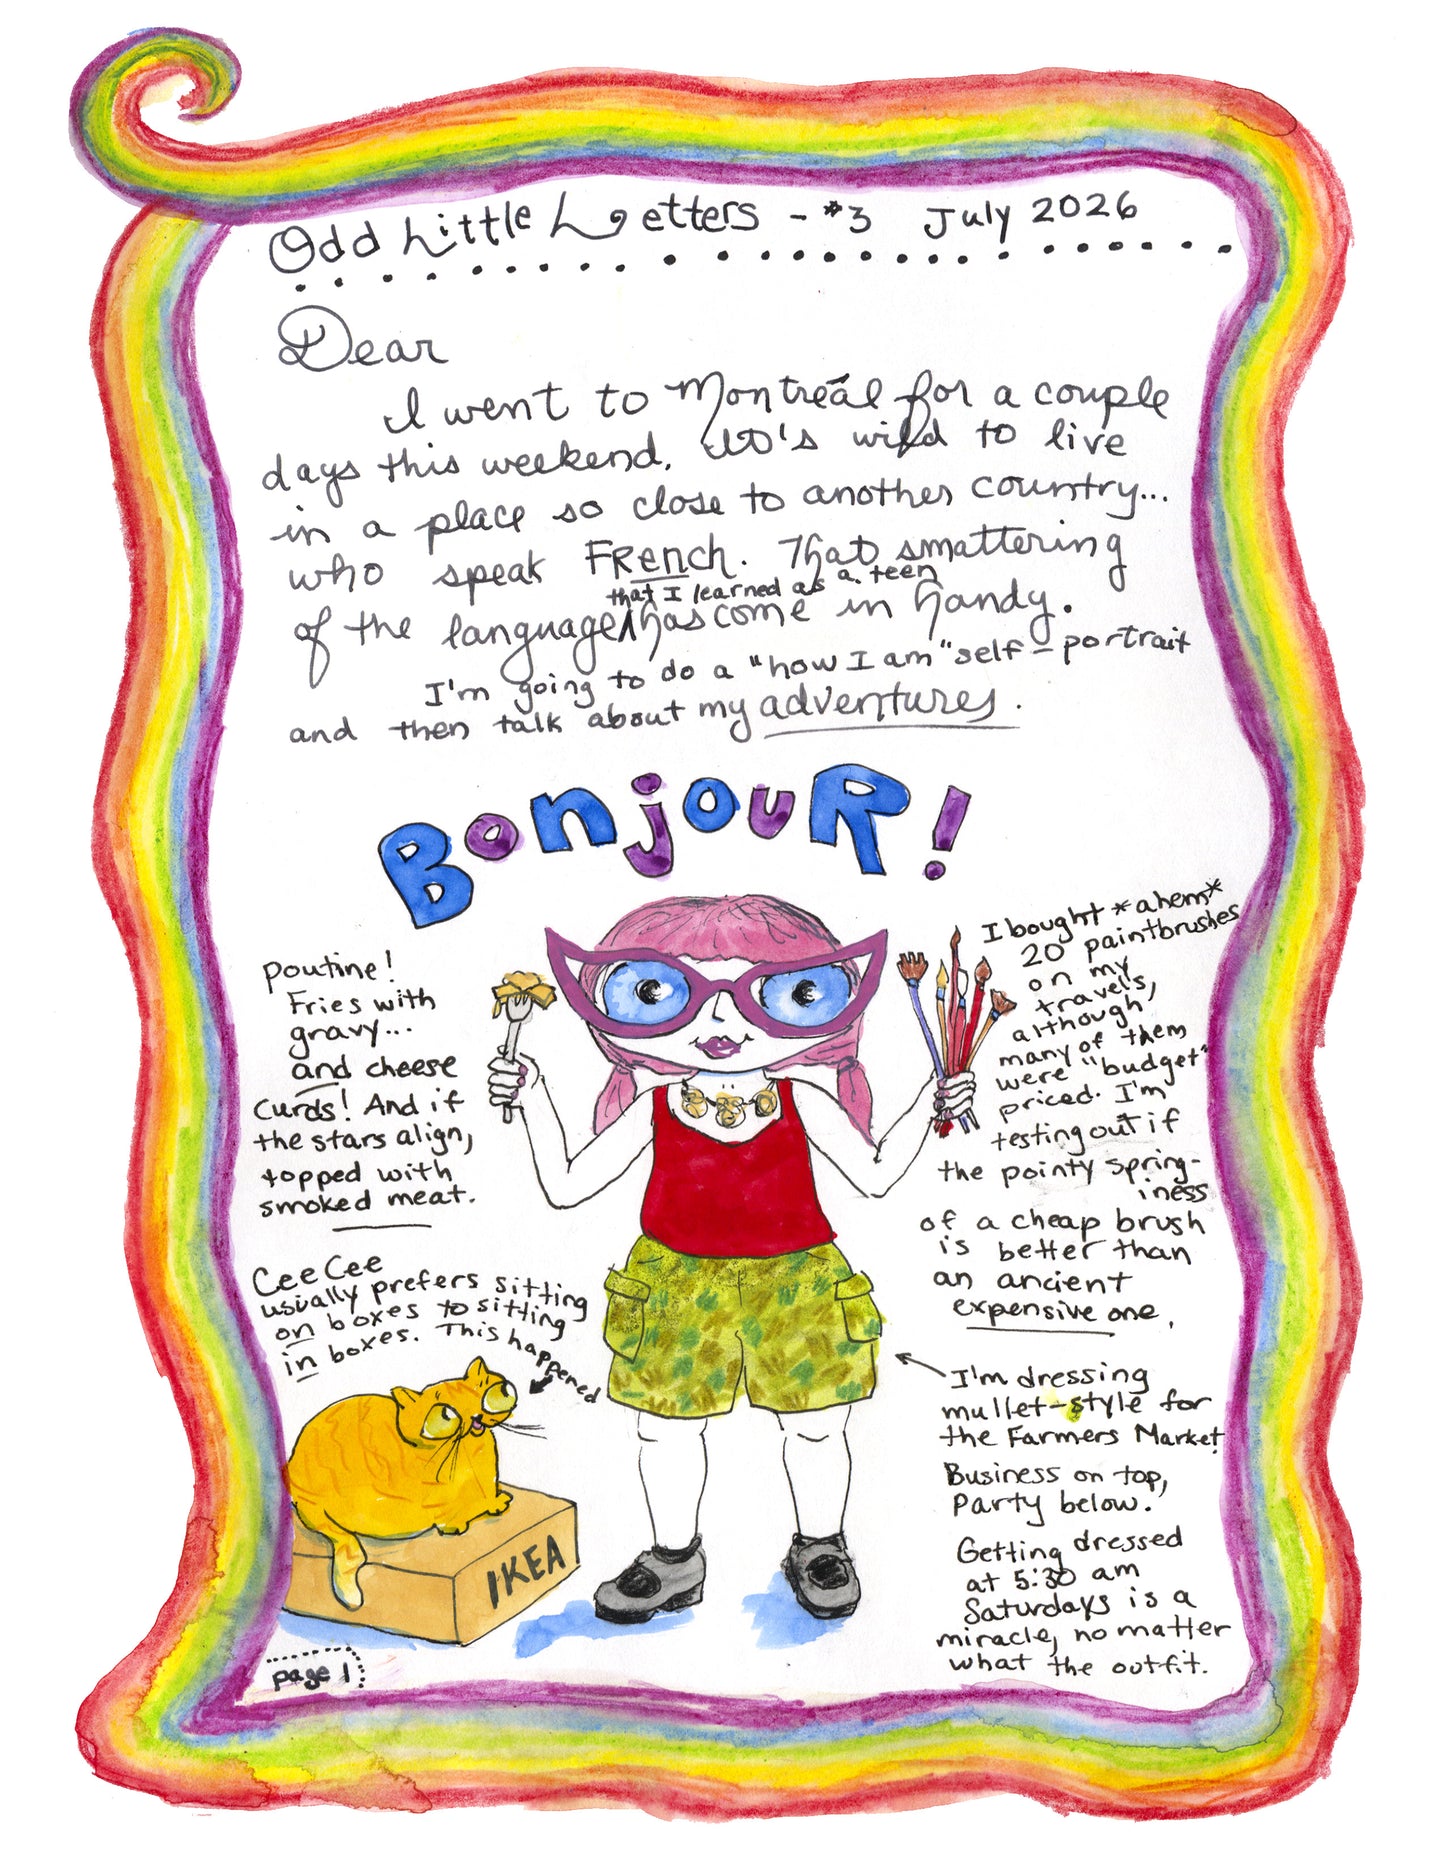 Odd Little Letters - #3 July 2026
Dear
I went to Montreál for a couple
days this weekend. It's wild to live
in a place so close to another country...
who speak FRench. That smattering
that I learned as a teen
of the language has come in handy.
I'm going to do a "how I am" self-portrait
and then talk about my adventures.
BonjouR!
poutine!
Fries with
gravy...
and cheese
curds! And if
the stars align,
topped with
smoked meat.
I bought *ahem*
20 paintbrushes
on my
travels,
although
many of them
were "budget"
priced. I'm
testing out if
the pointy spring-
iness
of a cheap brush
is better than
an ancient
expensive one.
CeeCee
usually prefers sitting
on boxes to sitting
in boxes. This happened
IKEA
I'm dressing
mullet-style for
the Farmers Market
Business on top,
Party below.
Getting dressed
at 5:30 am
Saturdays is a
miracle, no matter
what the outfit.
page 1